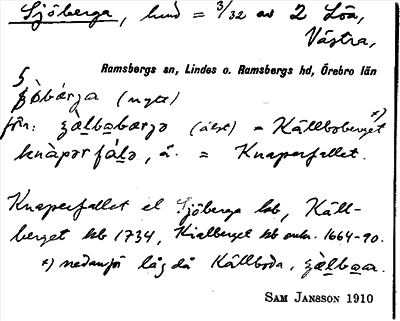 Sjöberga, hmd = 3/32 av 2 Löa,
Västra,
Ramsbergs sn, Lindes o. Ramsbergs hd, Örebro län
(nytt)
förr: (äldst) = Källboberget *)
knàpər fálə, ä. = Knaperfallet.
Knaperfallet el Sjöberga hb, Käll-
berget hb 1734, Kialberget hb 1664-90.
*) nedanför låg då Källboda,
SAM JANSSON 1910